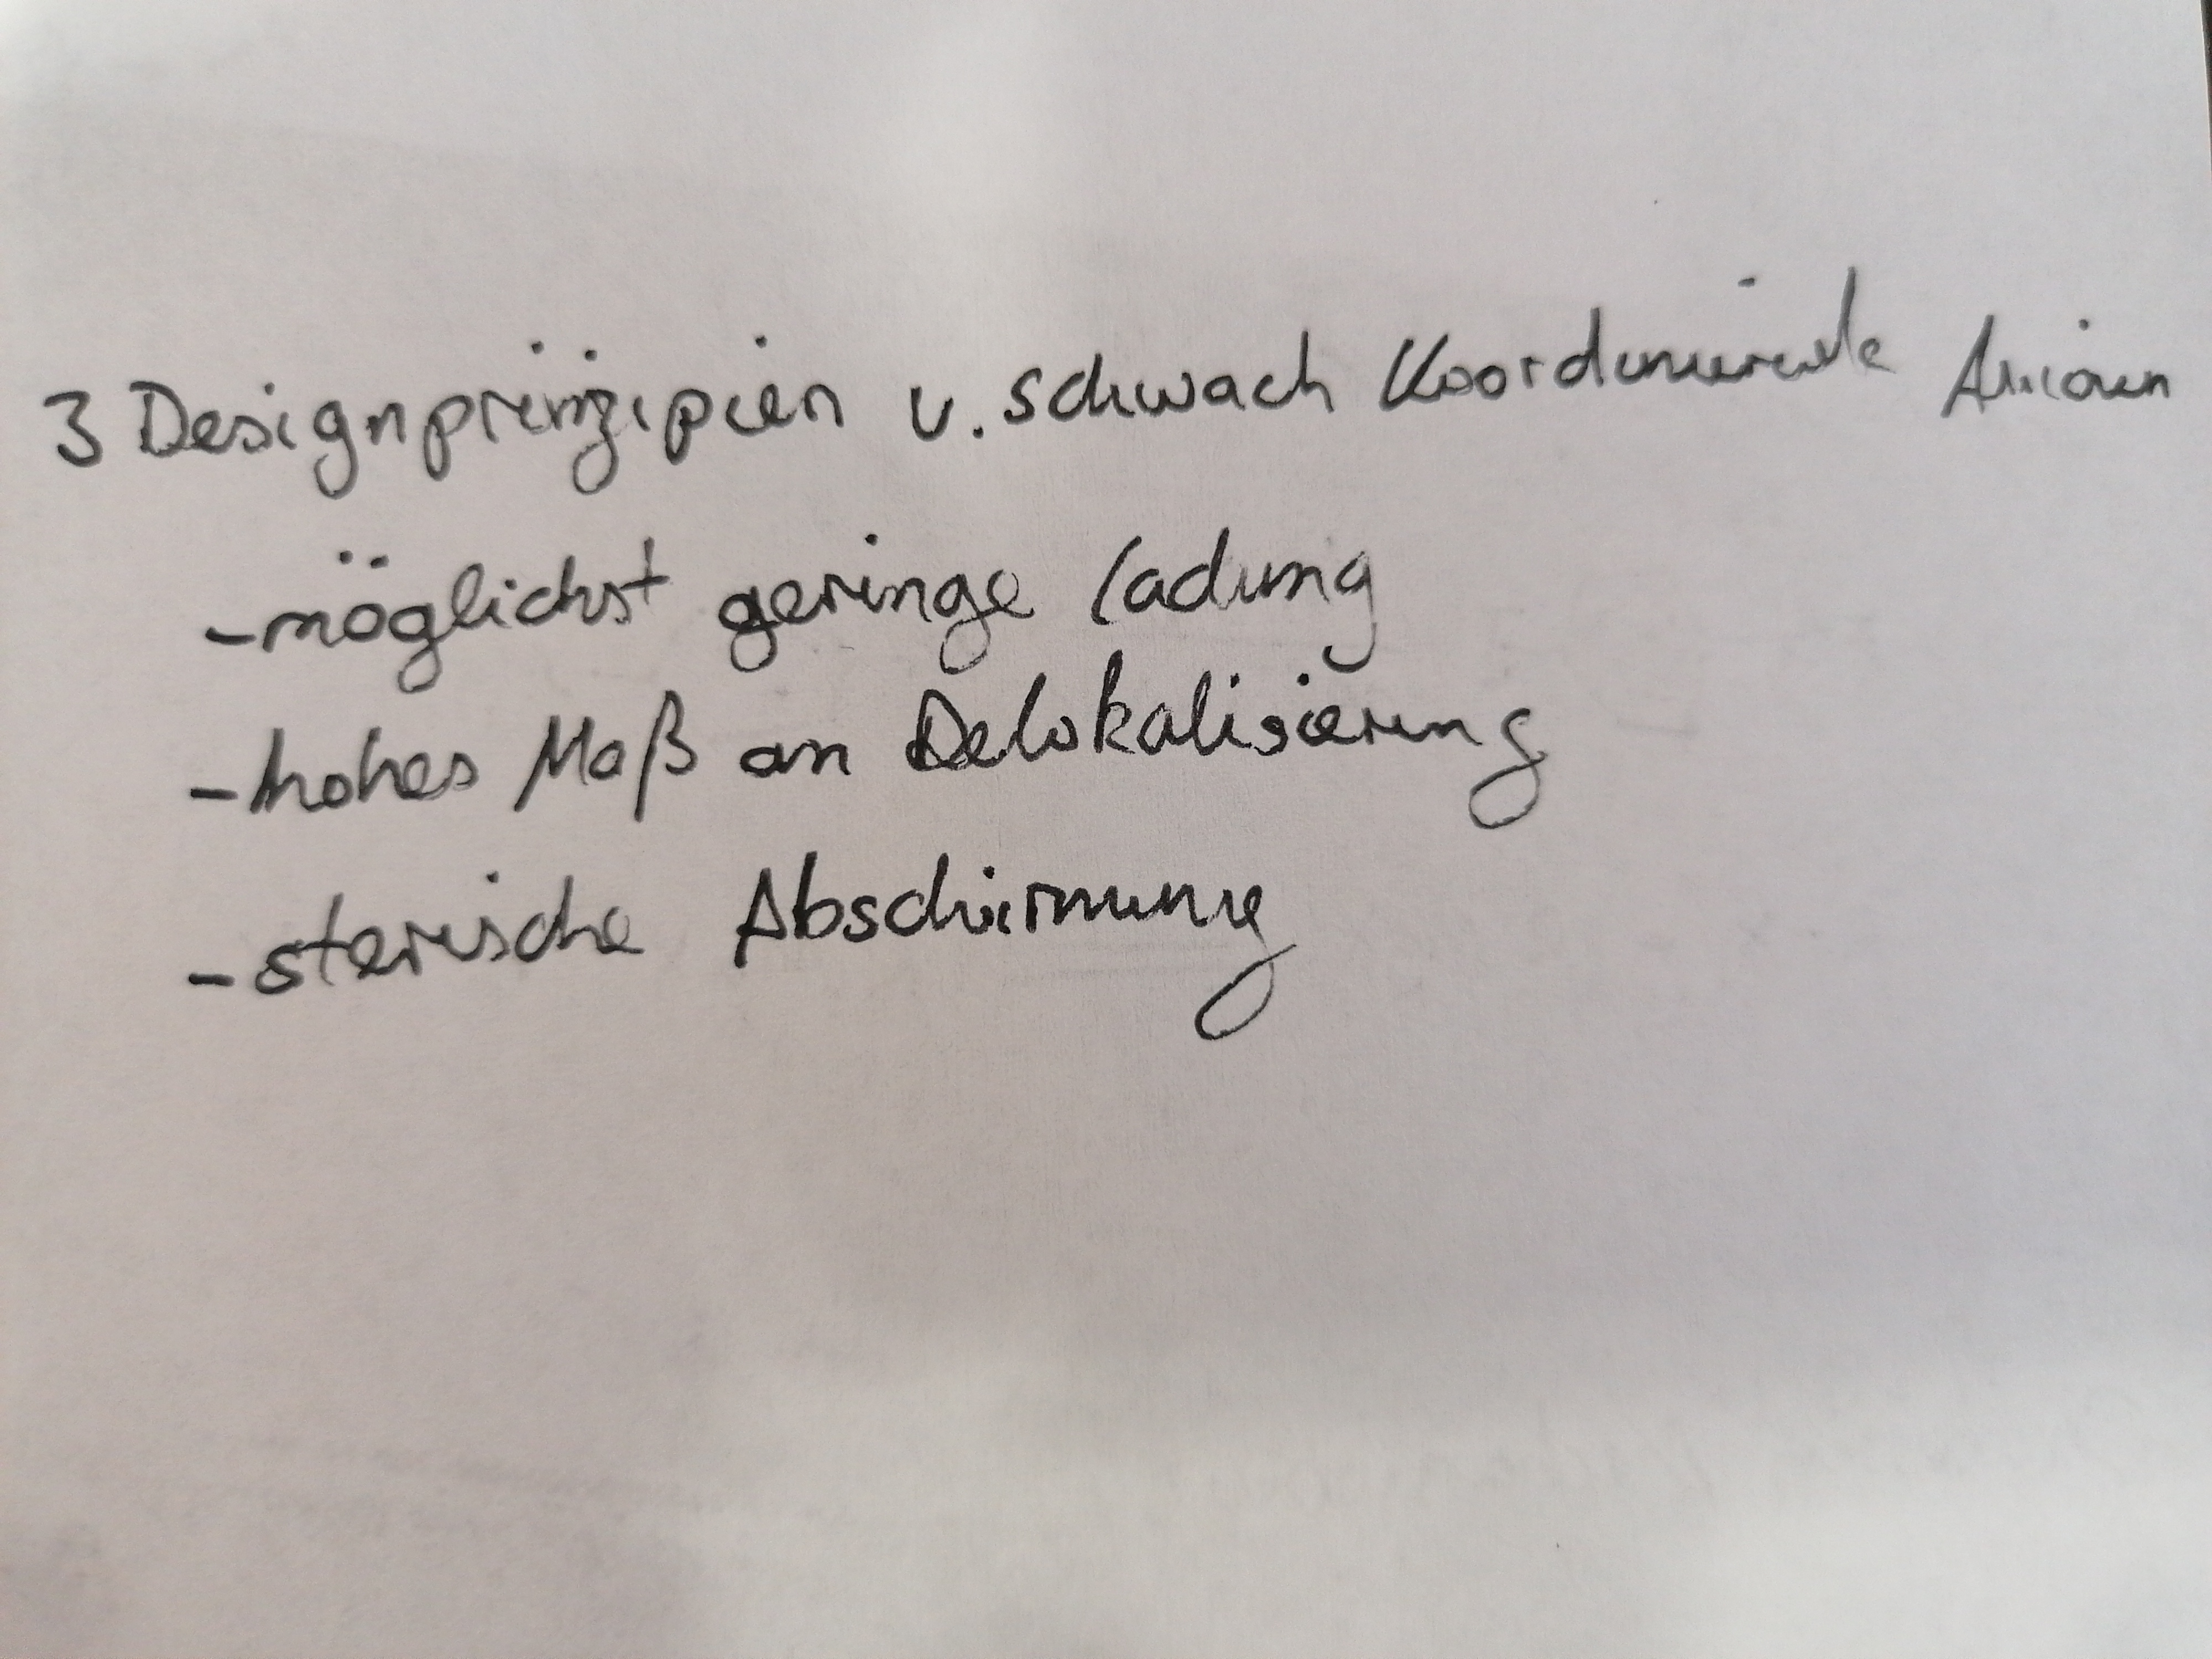 3 Designprinzipien v. schwach Koordinierende Anionen
- möglichst geringe ladung
- hohes Maß an Delokalisierung
- sterische Abschirmung